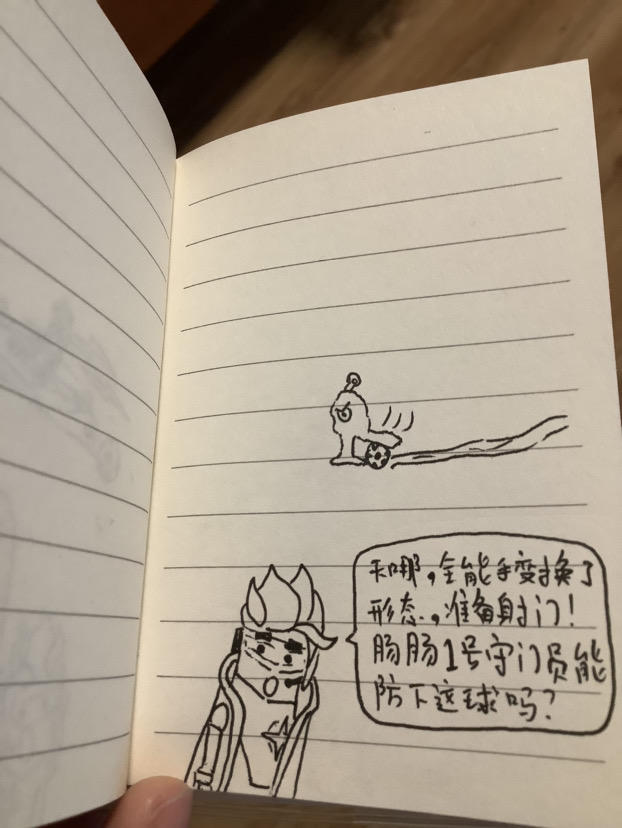 天哪，全能手变换了
形态，准备射门！
肠肠1号守门员能
防下这球吗？